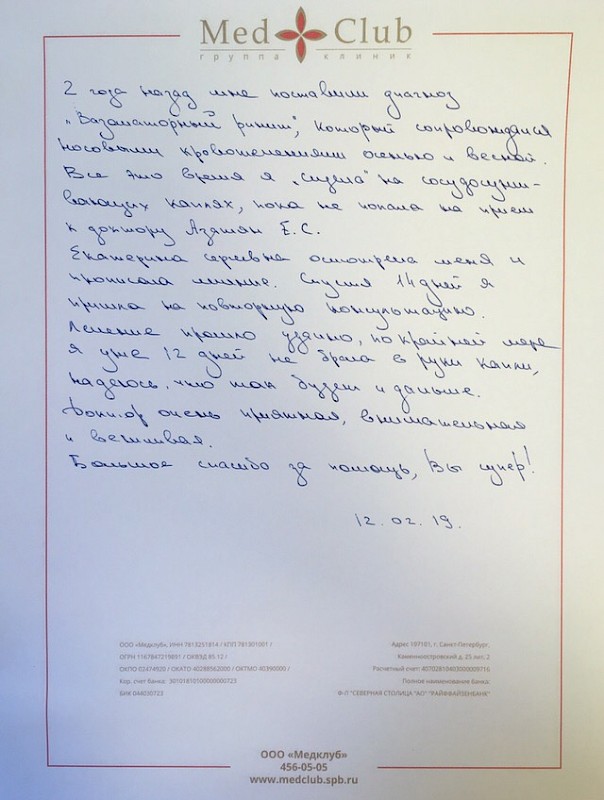 Med Club
группа клиник
2 года назад мне поставили диагноз
„Вазоматорный ринит", который сопровождался
носовыми кровотечениями осенью и весной.
Все это время я „сидела" на сосудосужи-
вающих каплях, пока не попала на прием
к доктору Азатян Е.С.
Екатерина Сергеевна осмотрела меня и
прописала лечение. Спустя 14 дней я
пришла на повторную консультацию.
Лечение прошло удачно, по крайней мере
я уже 12 дней не брала в руки капли,
надеюсь, что так будет и дальше.
Доктор очень приятная, внимательная
и вежливая.
Большое спасибо за помощь, Вы супер!
12.02.19.
ООО «Медклуб», ИНН 7813251814 / КПП 781301001 /
ОГРН 1167847219891 / ОКВЭД 85.12 /
ОКПО 02474920 / ОКАТО 40288562000 / ОКТМО 40390000 /
Кор. счет банка: 30101810100000000723
БИК 044030723
Адрес 197101, г. Санкт-Петербург,
Каменноостровский д, 25 лит. 2
Расчетный счет: 40702810403000009716
Полное наименование банка:
Ф-Л "СЕВЕРНАЯ СТОЛИЦА "АО" "РАЙФФАЙЗЕНБАНК"
ООО «Медклуб»
456-05-05
www.medclub.spb.ru